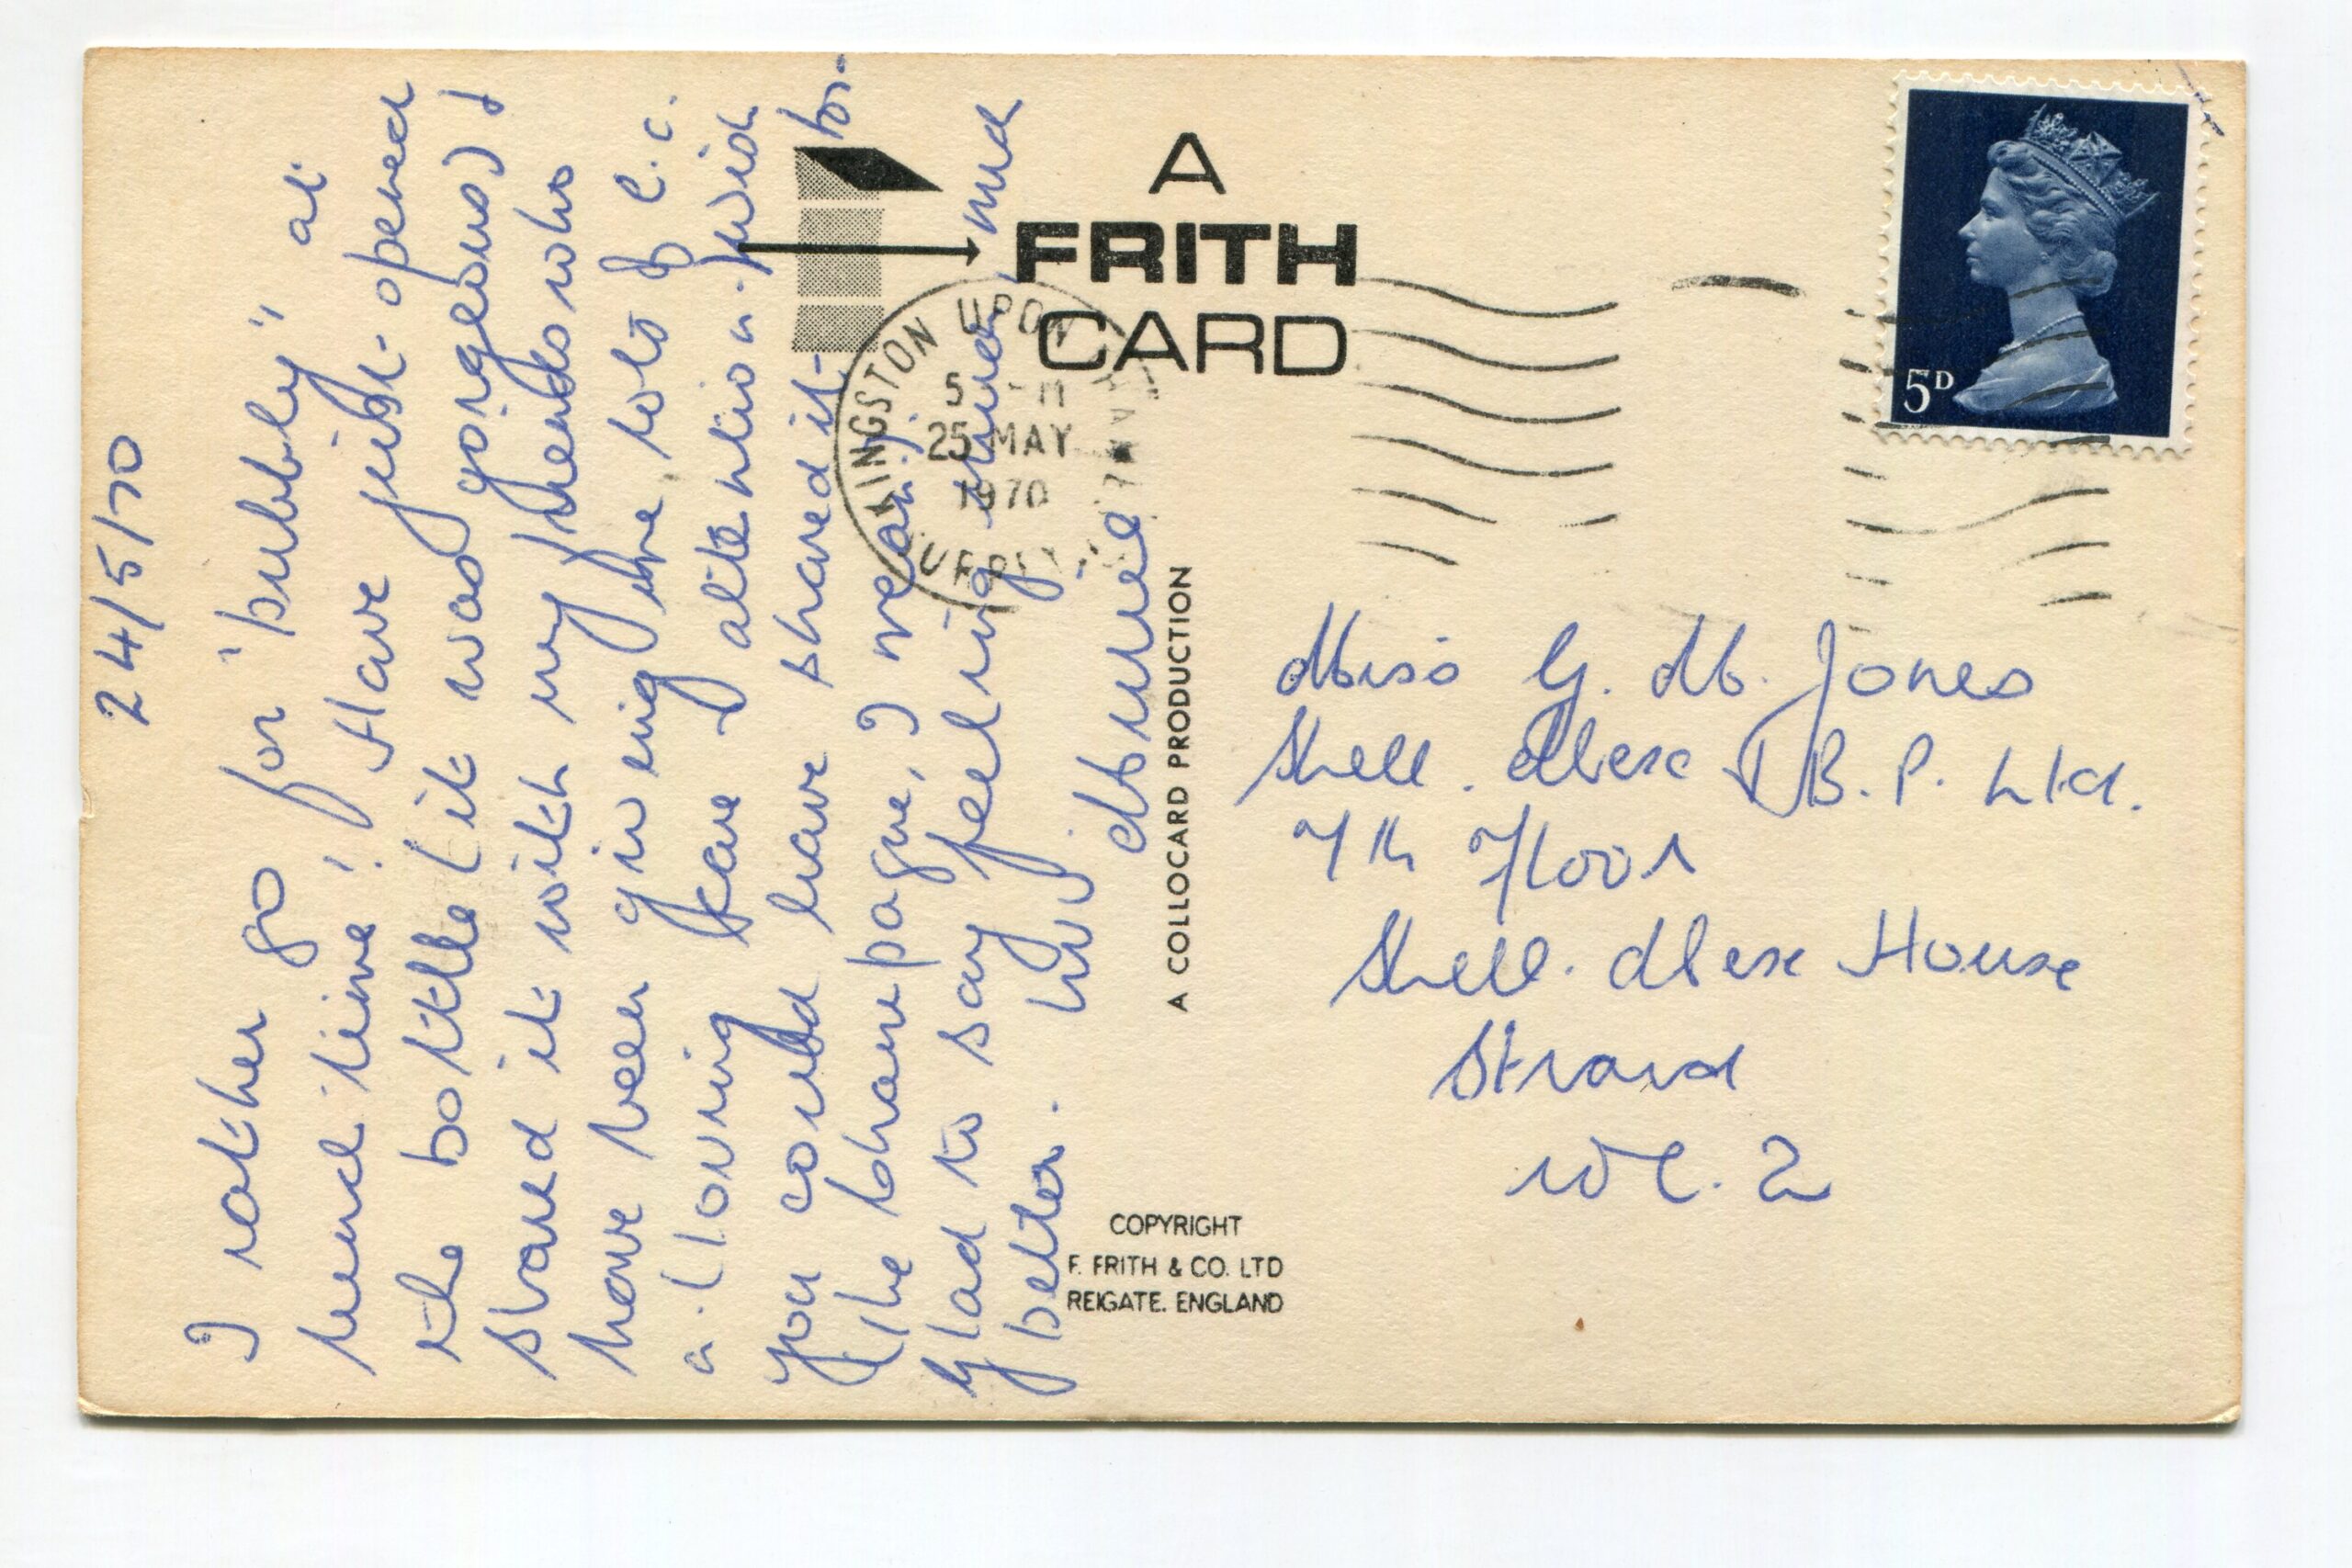 24/5/70
I rather go for "bubbly" at
lunch time! Have just opened
the bottle (it was gorgeous) &
shared it with my friends who
have been giving me lots of t.c.
a. (loving care & attention. Wish
you could have shared it -
(the champagne, I mean). Am
Glad to say feeling much
better. Luv
A
FRITH
CARD
KINGSTON UPON
25 MAY
1970
A COLLOCARD PRODUCTION
5D
Miss G. M. Jones
Shell. Mex & B. P. Ltd.
7th Floor
Shell. Mex House
Strand
WC. 2
COPYRIGHT
F. FRITH & CO. LTD
REIGATE. ENGLAND